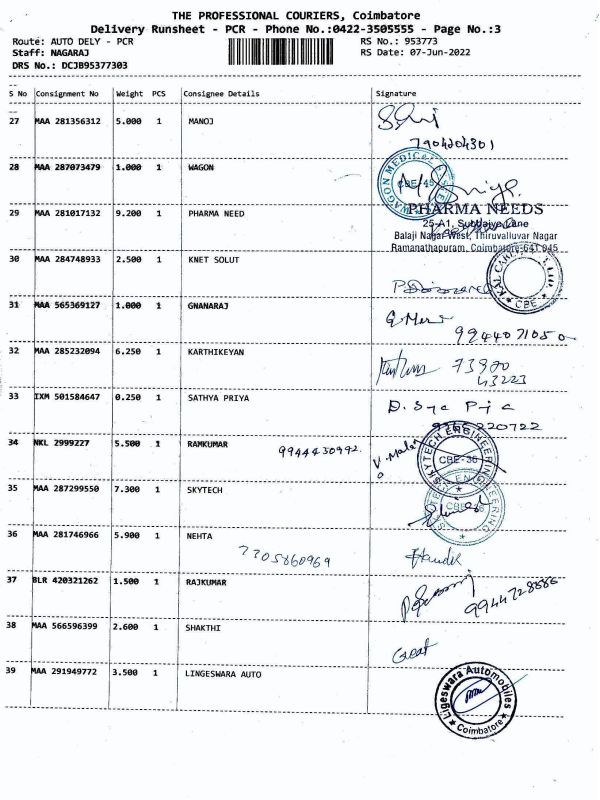 THE PROFESSIONAL COURIERS, Coimbatore
Delivery Runsheet - PCR - Phone No.:0422-3505555 - Page No.:3
Route: AUTO DELY - PCR RS No.: 953773
Staff: NAGARAJ RS Date: 07-Jun-2022
DRS No.: DCJB95377303
S No Consignment No Weight PCS Consignee Details Signature
27 MAA 281356312 5.000 1 MANOJ
7904204301
28 MAA 287073479 1.000 1 WAGON
WAGON MEDICAL
CBE-45
29 MAA 281017132 9.200 1 PHARMA NEED
PHARMA NEEDS
25-A1, Subbaiya Lane
Balaji Nagar West, Thiruvalluvar Nagar
Ramanathapuram, Coimbatore-641 045
30 MAA 284748933 2.500 1 KNET SOLUT
CBE
31 MAA 565369127 1.000 1 GNANARAJ
9944071050
32 MAA 285232094 6.250 1 KARTHIKEYAN
73980
43223
33 IXM 501584647 0.250 1 SATHYA PRIYA
220722
34 NKL 2999227 5.500 1 RAMKUMAR 9944430992
SKYTECH ENGINEERING
CBE-36
35 MAA 287299550 7.300 1 SKYTECH
36 MAA 281746966 5.900 1 NEHTA
7305860969
37 BLR 420321262 1.500 1 RAJKUMAR
38 MAA 566596399 2.600 1 SHAKTHI
39 MAA 291949772 3.500 1 LINGESWARA AUTO
Ligeswara Automobiles
Coimbatore